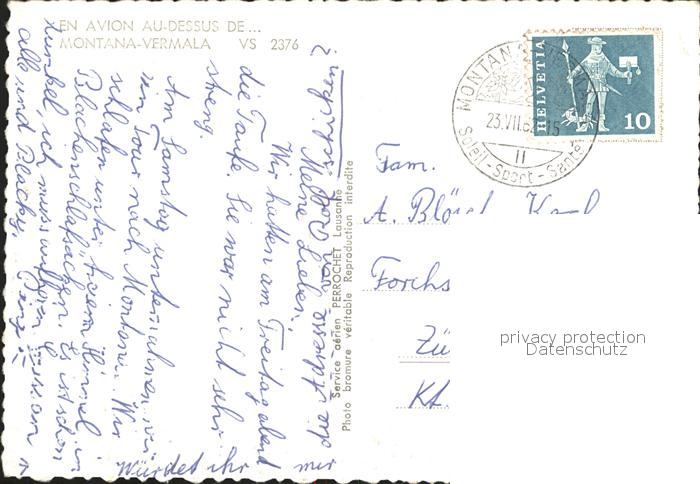 EN AVION AU-DESSUS DE...
MONTANA-VERMALA VS 2376
Meine Lieben,
Wir hatten am Freitag abend
die Taufe. Sie war nicht sehr
streng.
Am Samstag unternahmen wir
ein Tour nach Montana. Wir
schlafen unter freiem Himmel in
Blachenschlafsäcken. Es ist schon
dunkel ich muss aufhören
alle und Blacky.
Würdet ihr mir
die Adresse von
Service aérien PERROCHET Lausanne
Photo bromure véritable Reproduction interdite
MONTANA
23.VII.6 15
11
Soleil-Sport-Santé
HELVETIA
10
Fam.
A.
Forchs
Zü
Kt.
privacy protection
Datenschutz